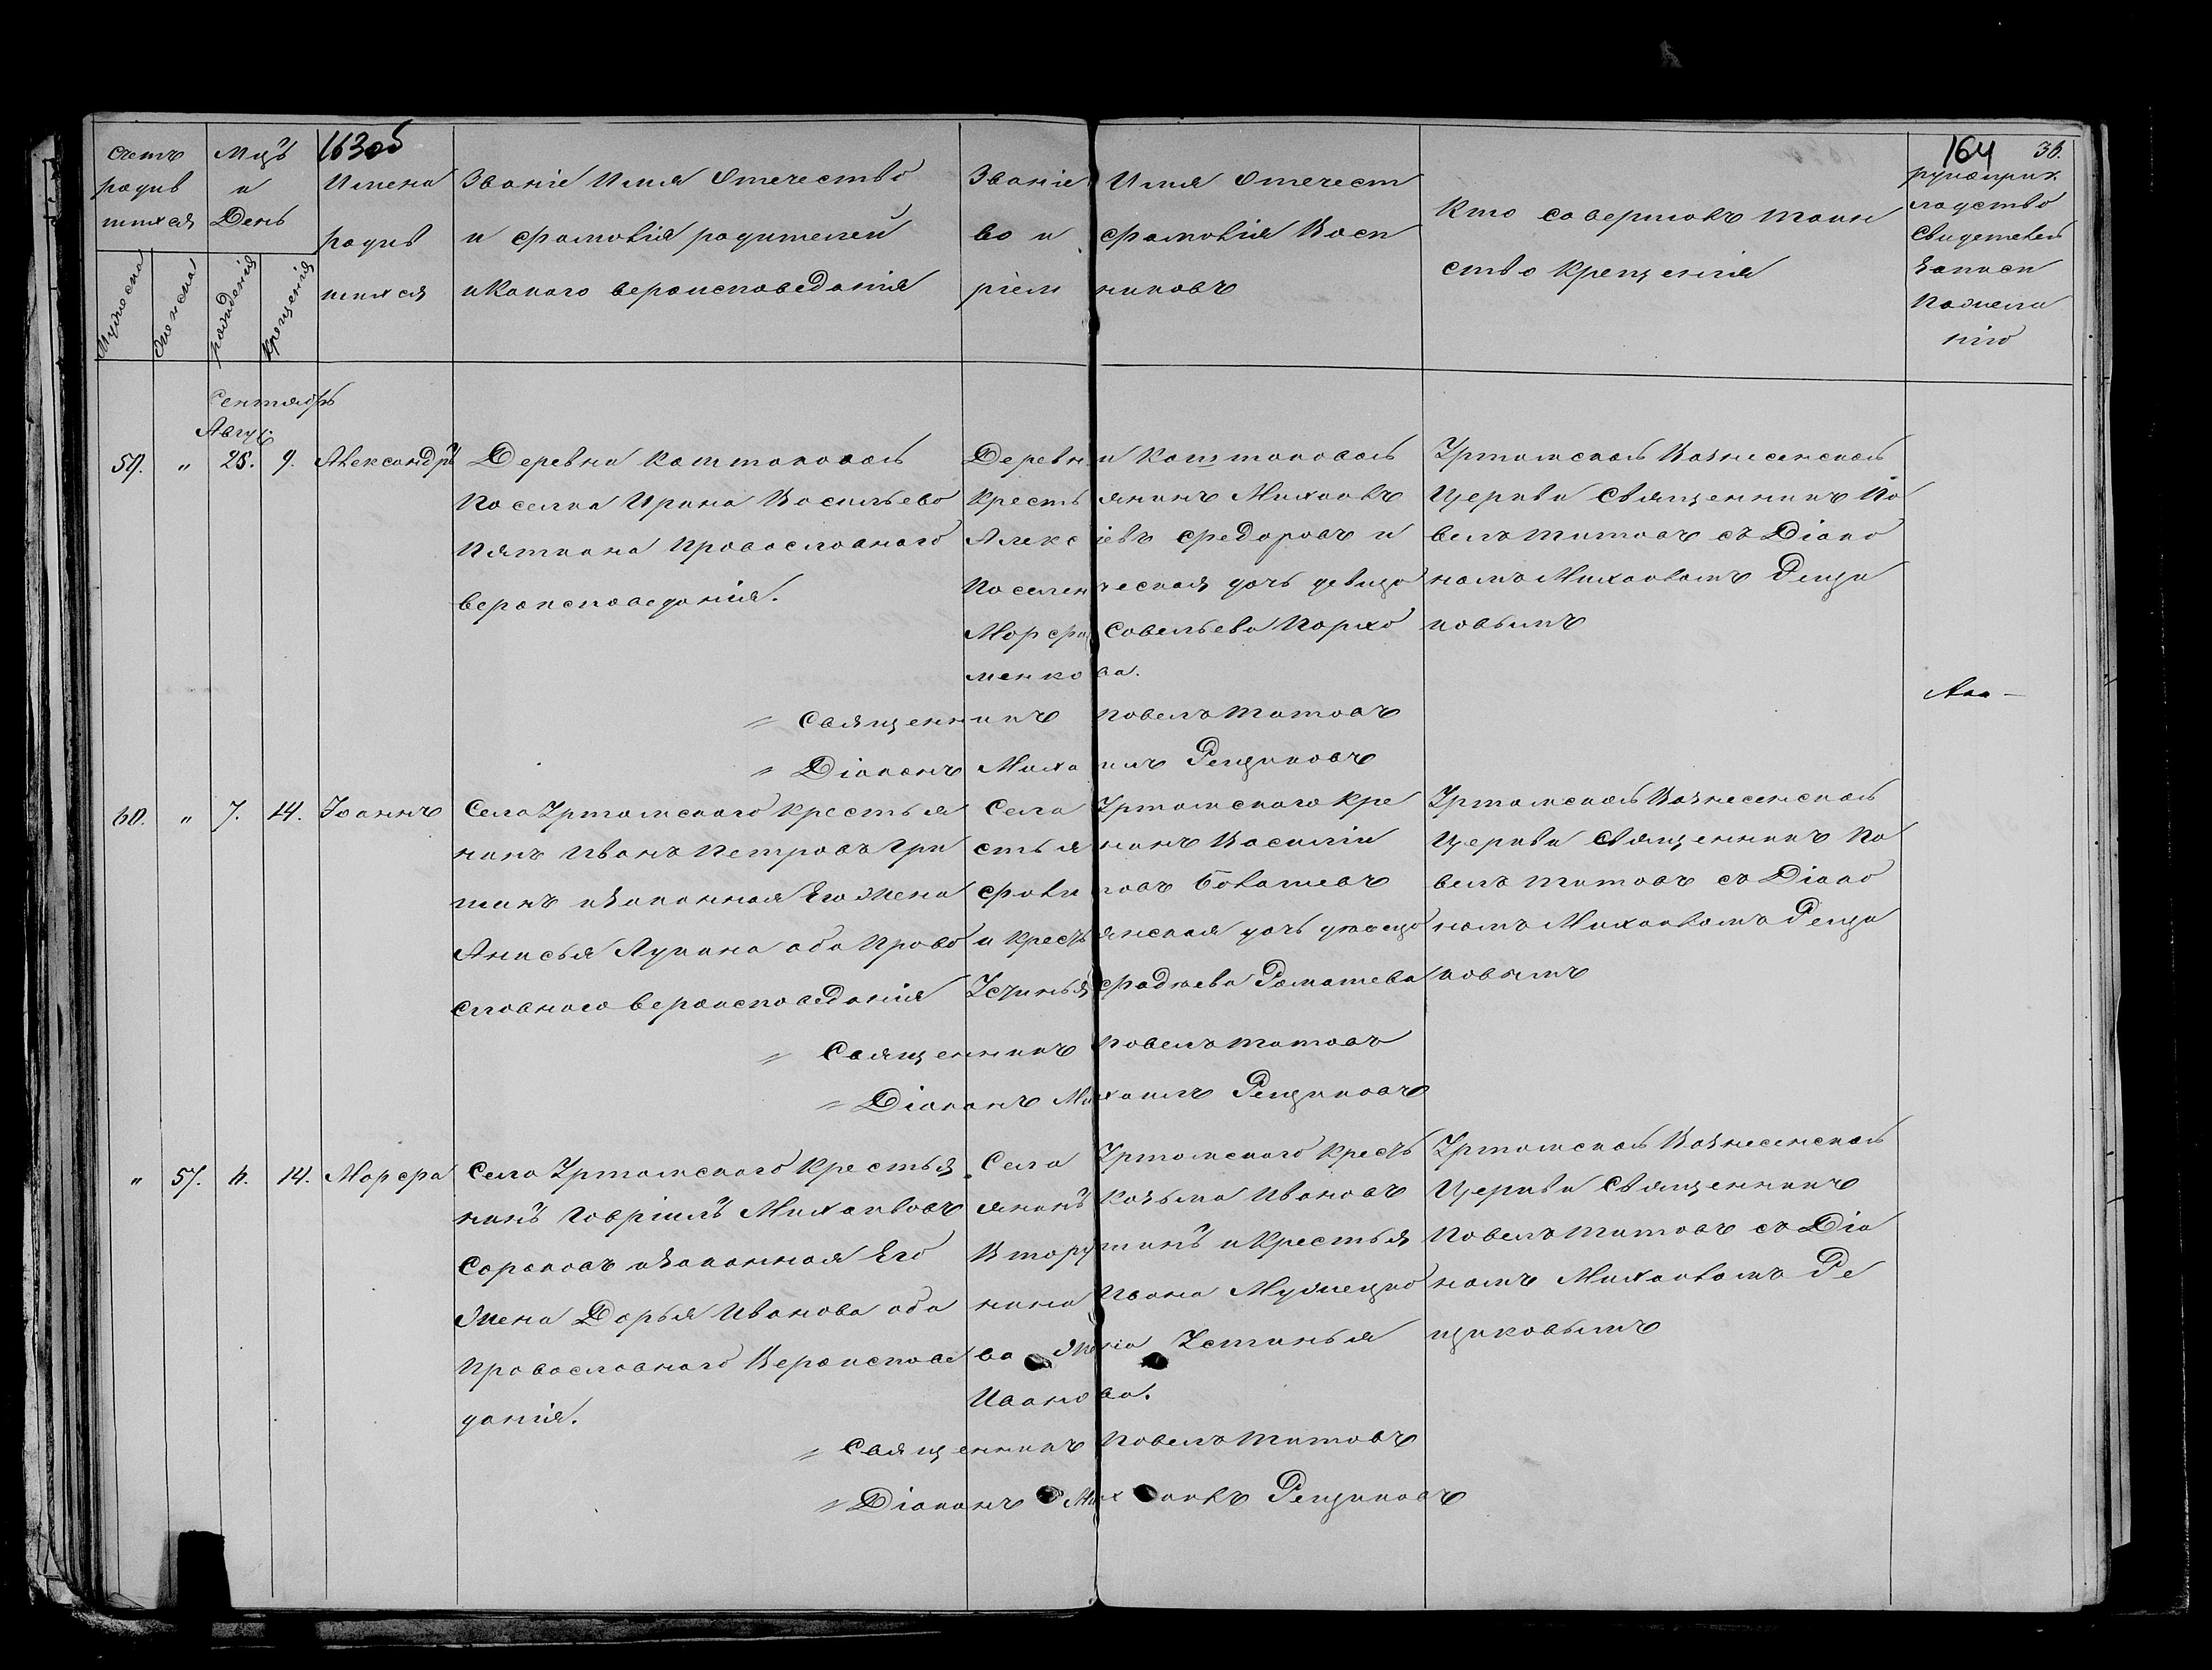 163об
164 36.
Счетъ родив шихся
Мужеска
Женска
Мцъ и День
рожденія
крещенія
Имена родив шихся
Званіе Имя Отечество
и фамилія родителей
и какого вероисповеданія
Званіе Имя Отечест
во и фамилія Восп
ріем никовъ
Кто совершалъ таин
ство крещенія
рукоприк
ладство
свидетелей
записи
по желанію
Сентябрь
Авгус.
59. " 28. 9. Александръ
Деревни
Поселка Ирина Васильева
Пяткина Православнаго
вероисповеданія.
Деревни
Крестьянинъ Михаилъ
Алексіевъ Федоровъ и
Поселенческая дочь девица
Марфа Савельева Пархо
менкова.
Уртамской Вознесенской
Церкви Священникъ Па
велъ Титовъ съ Діако
номъ Михаиломъ Рещи
ковымъ
Священникъ Павелъ Титовъ
Діаконъ Михаилъ Рещиковъ
60. " 7. 14. Іоаннъ
Села Уртамского крестья
нинъ Иванъ Петровъ Гри
шинъ и законная Его жена
Анисья Лукина оба Право
славного вероисповеданія
Села Уртамского кре
стьянинъ Василій
и Крестьянская дочь девица
Устинья Фадеева Ромашева
Уртамской Вознесенской
Церкви Священникъ Па
велъ Титовъ съ Діако
номъ Михаиломъ Рещи
ковымъ
Священникъ Павелъ Титовъ
Діаконъ Михаилъ Рещиковъ
" 57. 6. 14. Марфа
Села Уртамского Крестья
нинъ Гавріилъ Михаиловъ
Сороковъ и Законная Его
Жена Дарья Иванова оба
Православного Вероиспове
данія.
Села Уртамского Кресть
янинъ Козьма Ивановъ
Вторушинъ и Крестья
нина Ивана Мужецко
ва Жена Устинья
Иванова.
Уртамской Вознесенской
Церкви Священникъ
Павелъ Титовъ съ Діа
номъ Михаиломъ Ре
щиковымъ
Священникъ Павелъ Титовъ
Діаконъ Михаилъ Рещиковъ